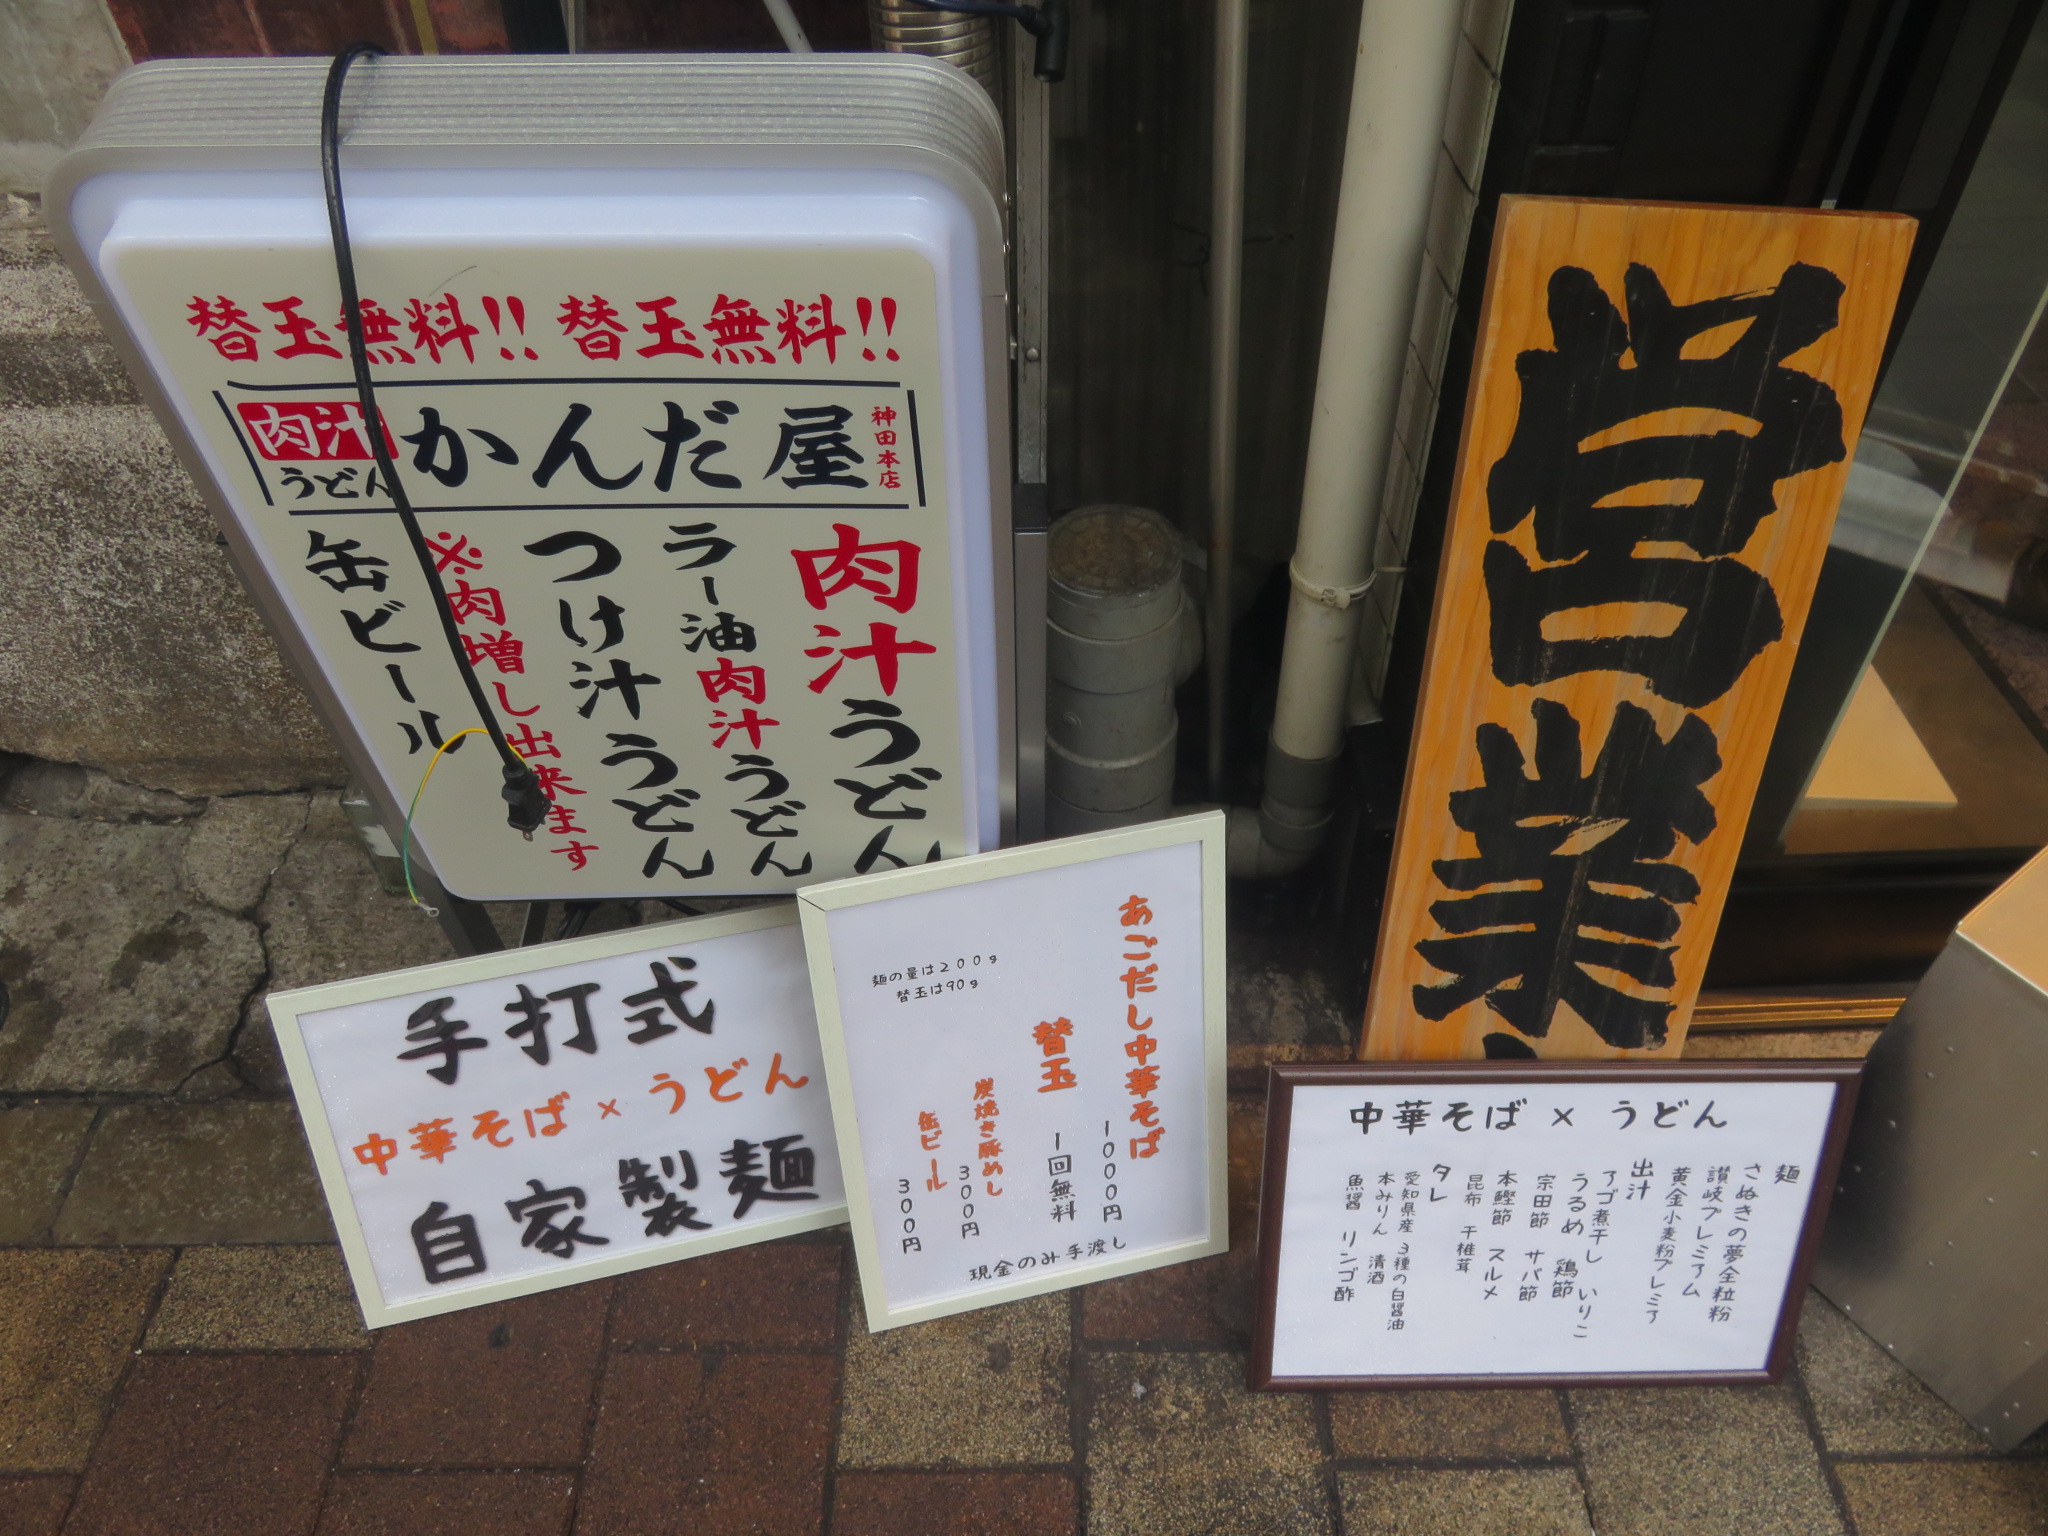 替玉無料!! 替玉無料!!
肉汁
うどん
かんだ屋
神田本店
肉汁うどん
ラー油肉汁うどん
つけ汁うどん
※肉増し出来ます
缶ビール
手打式
中華そば×うどん
自家製麺
あごだし中華そば
1000円
替玉
1回無料
炭焼き豚めし
300円
缶ビール
300円
麺の量は200g
替玉は90g
現金のみ手渡し
営業
中華そば × うどん
麺
さぬきの夢全粒粉
讃岐プレミアム
黄金小麦粉プレミア
出汁
アゴ煮干し いりこ
うるめ 鶏節
宗田節 サバ節
本鰹節 スルメ
昆布 干椎茸
タレ
愛知県産 3種の白醤油
本みりん 清酒
魚醤 リンゴ酢